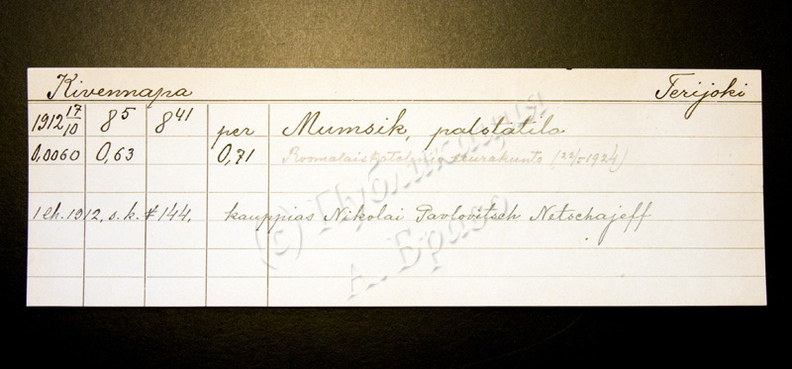 Kivennapa Terijoki
1912 17/10 8⁵ 8⁴¹ per Mumsik, palstatila
0,0060 0,63 0,71 Roomalaiskatol. seurakunta (22/5 1924)
1 eh. 1912, s. k. # 144, kauppias Nikolai Pavlovitsch Netschajeff
(c) Публикация
А. Браво